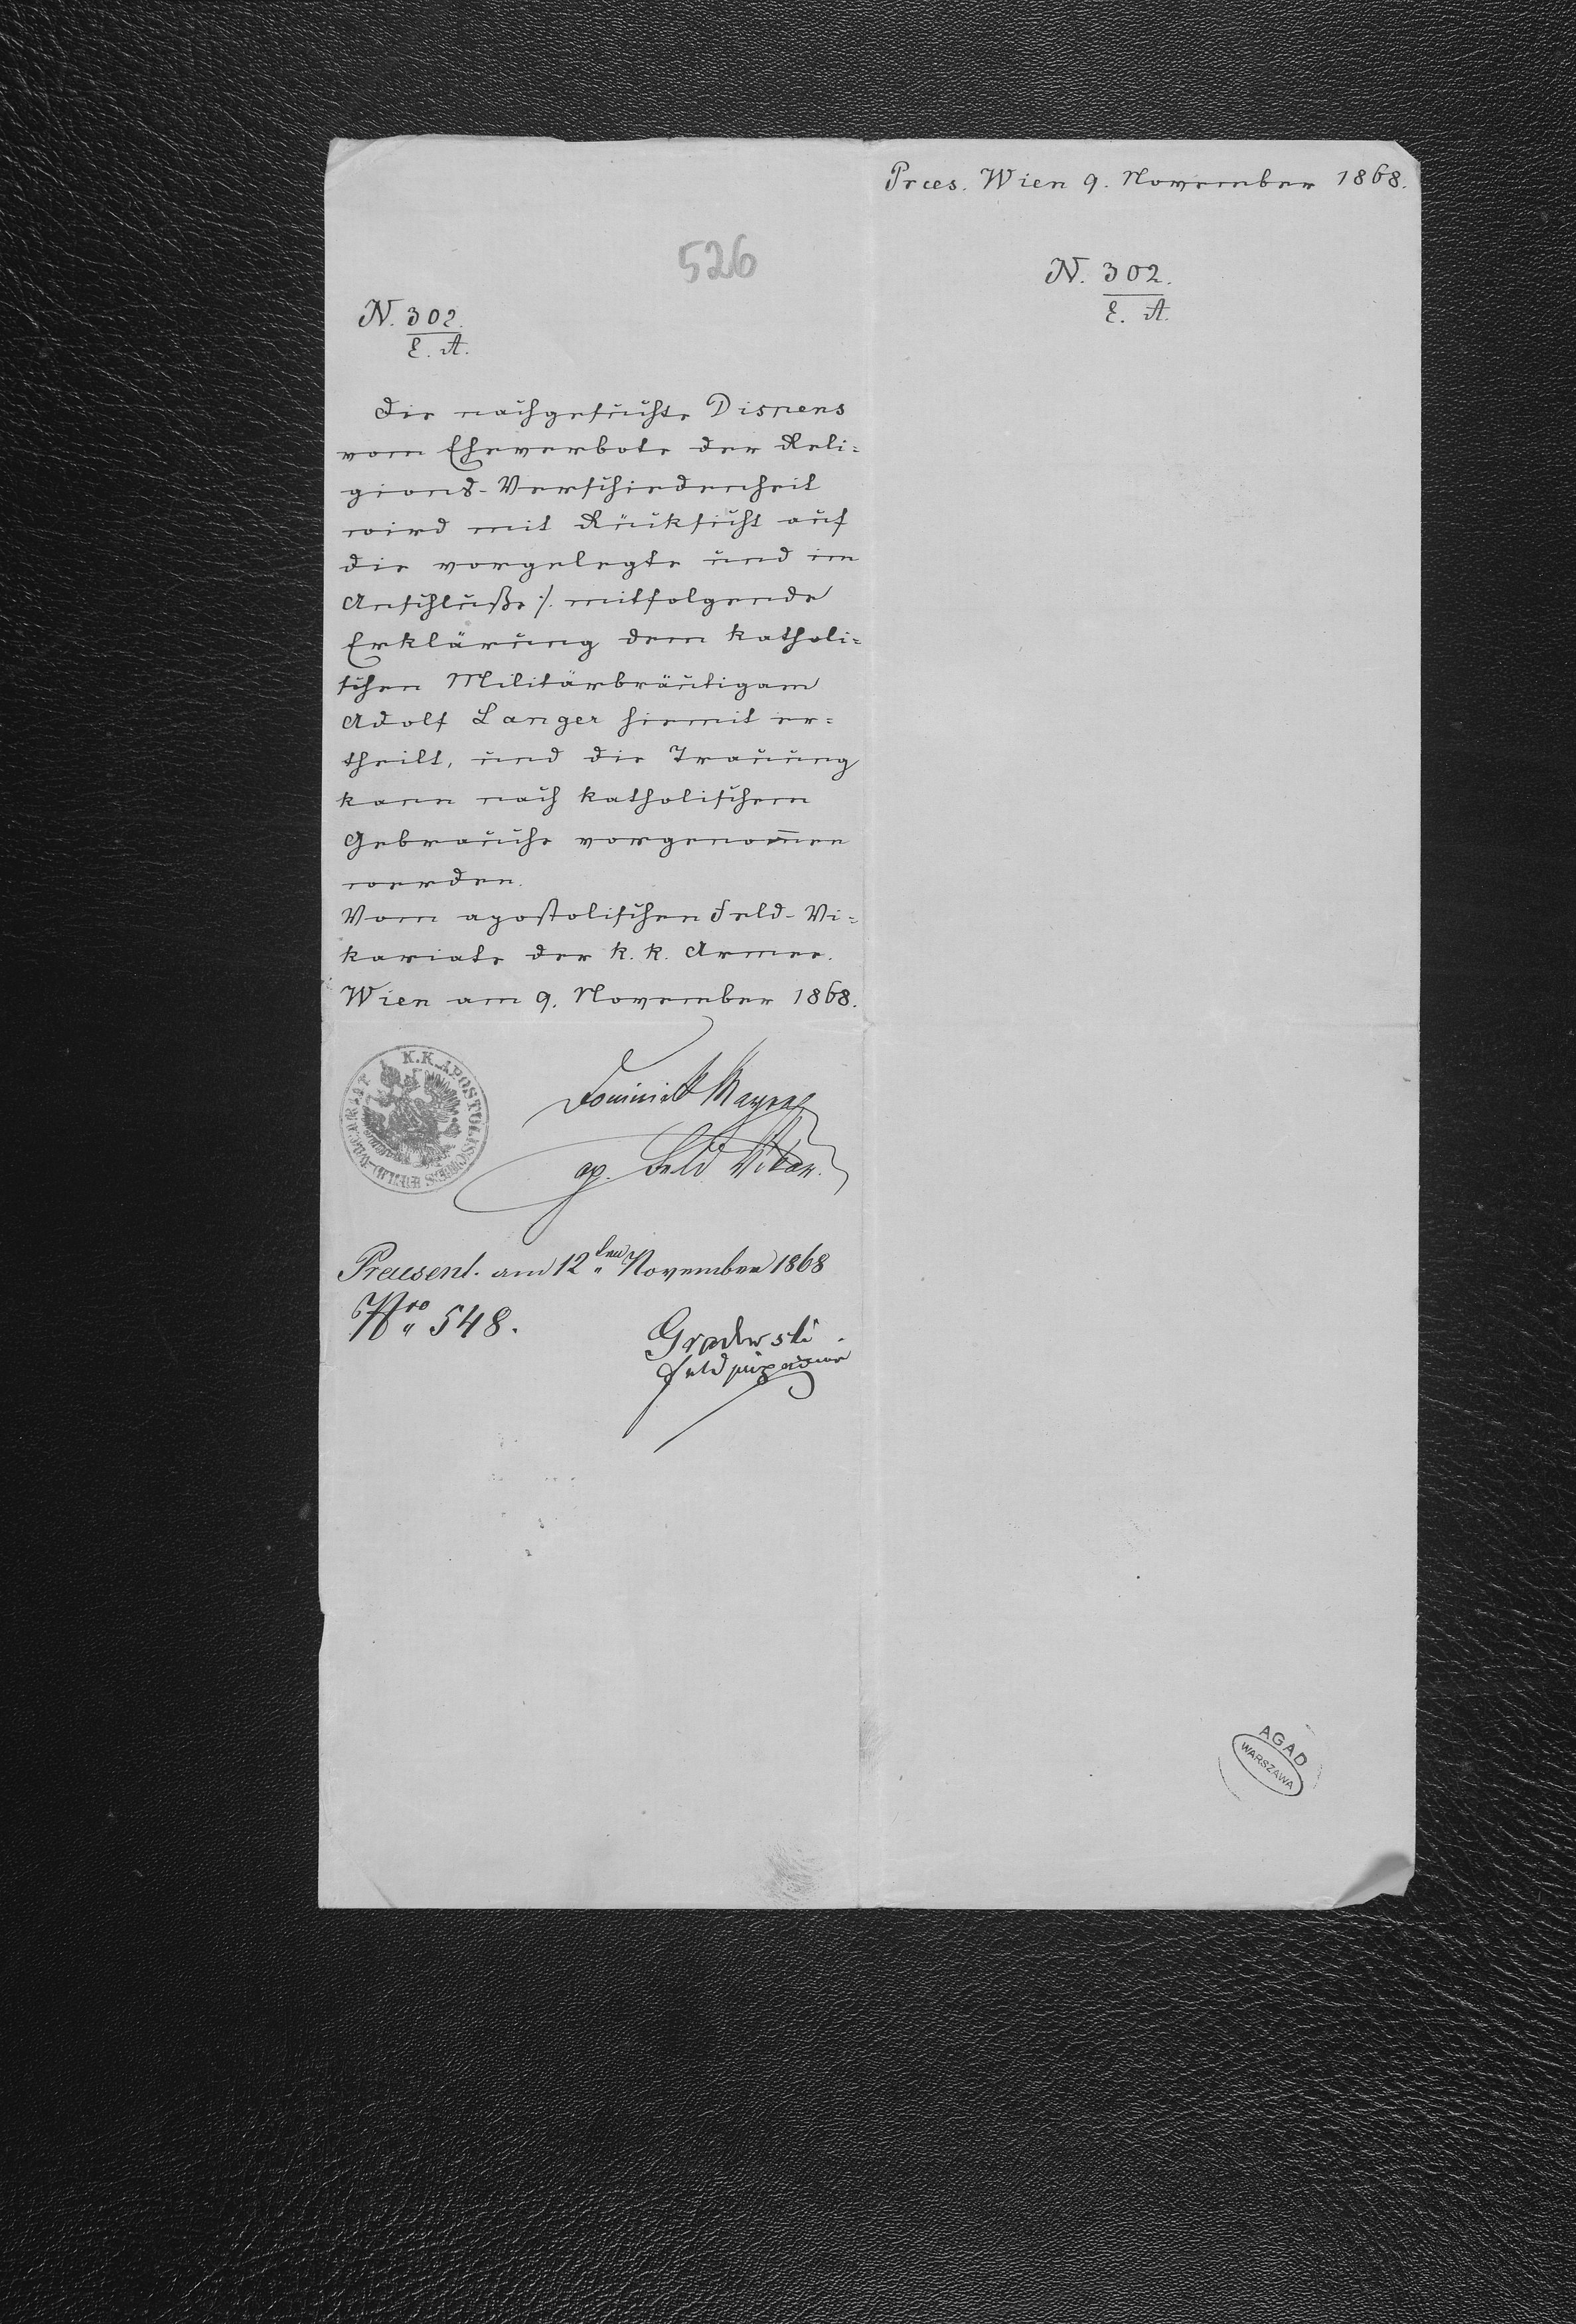 Praes. Wien 9. November 1868.
526
N. 302.
E. A.
N. 302.
E. A.
Die nachgesuchte Dispens
vom Eheverbote der Reli=
gions-Verschiedenheit
wird mit Rücksicht auf
die vorgelegte und im
Anschluße ./. mitfolgende
Erklärung dem katholi=
schen Militärbräutigam
Adolf Langer hiemit er=
theilt, und die Trauung
kann nach katholischem
Gebrauche vorgenom̅en
werden.
Vom apostolischen Feld-Vi=
kariate der k. k. Armee.
Wien am 9. November 1868.
K.K. APOSTOLISCHES FELD-VICARIAT
Dominik Mayer
ap. Feld Vikar.
Praesent. am 12ten November 1868
Nro 548.
Feldsuperior
AGAD
WARSZAWA